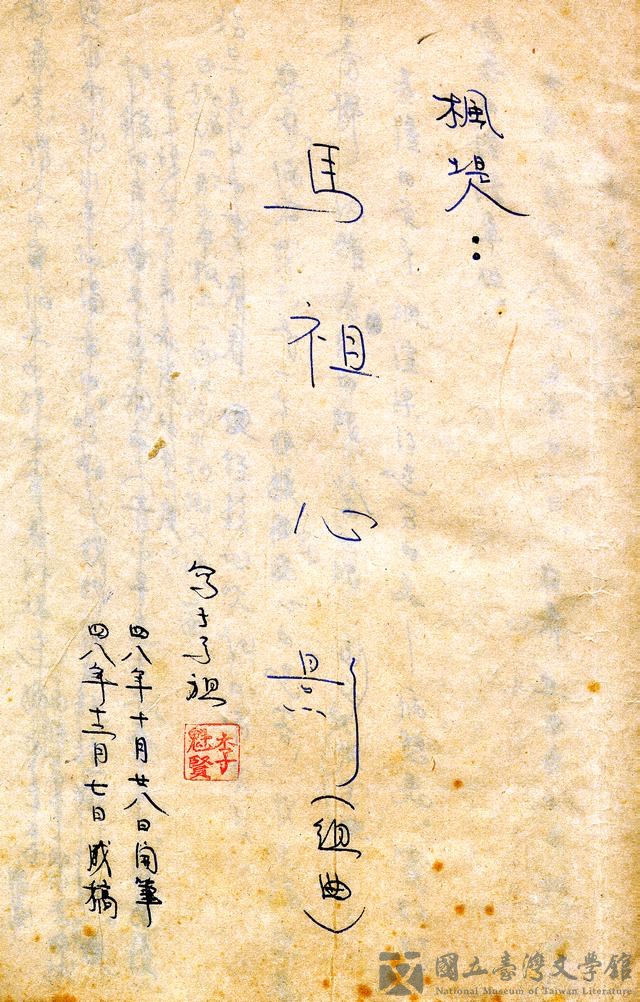 楓堤：
馬祖心影（組曲）
写于马祖
李魁賢
四八年十月廿八日開筆
四八年十二月七日成稿
國立臺灣文學館
National Museum of Taiwan Literature